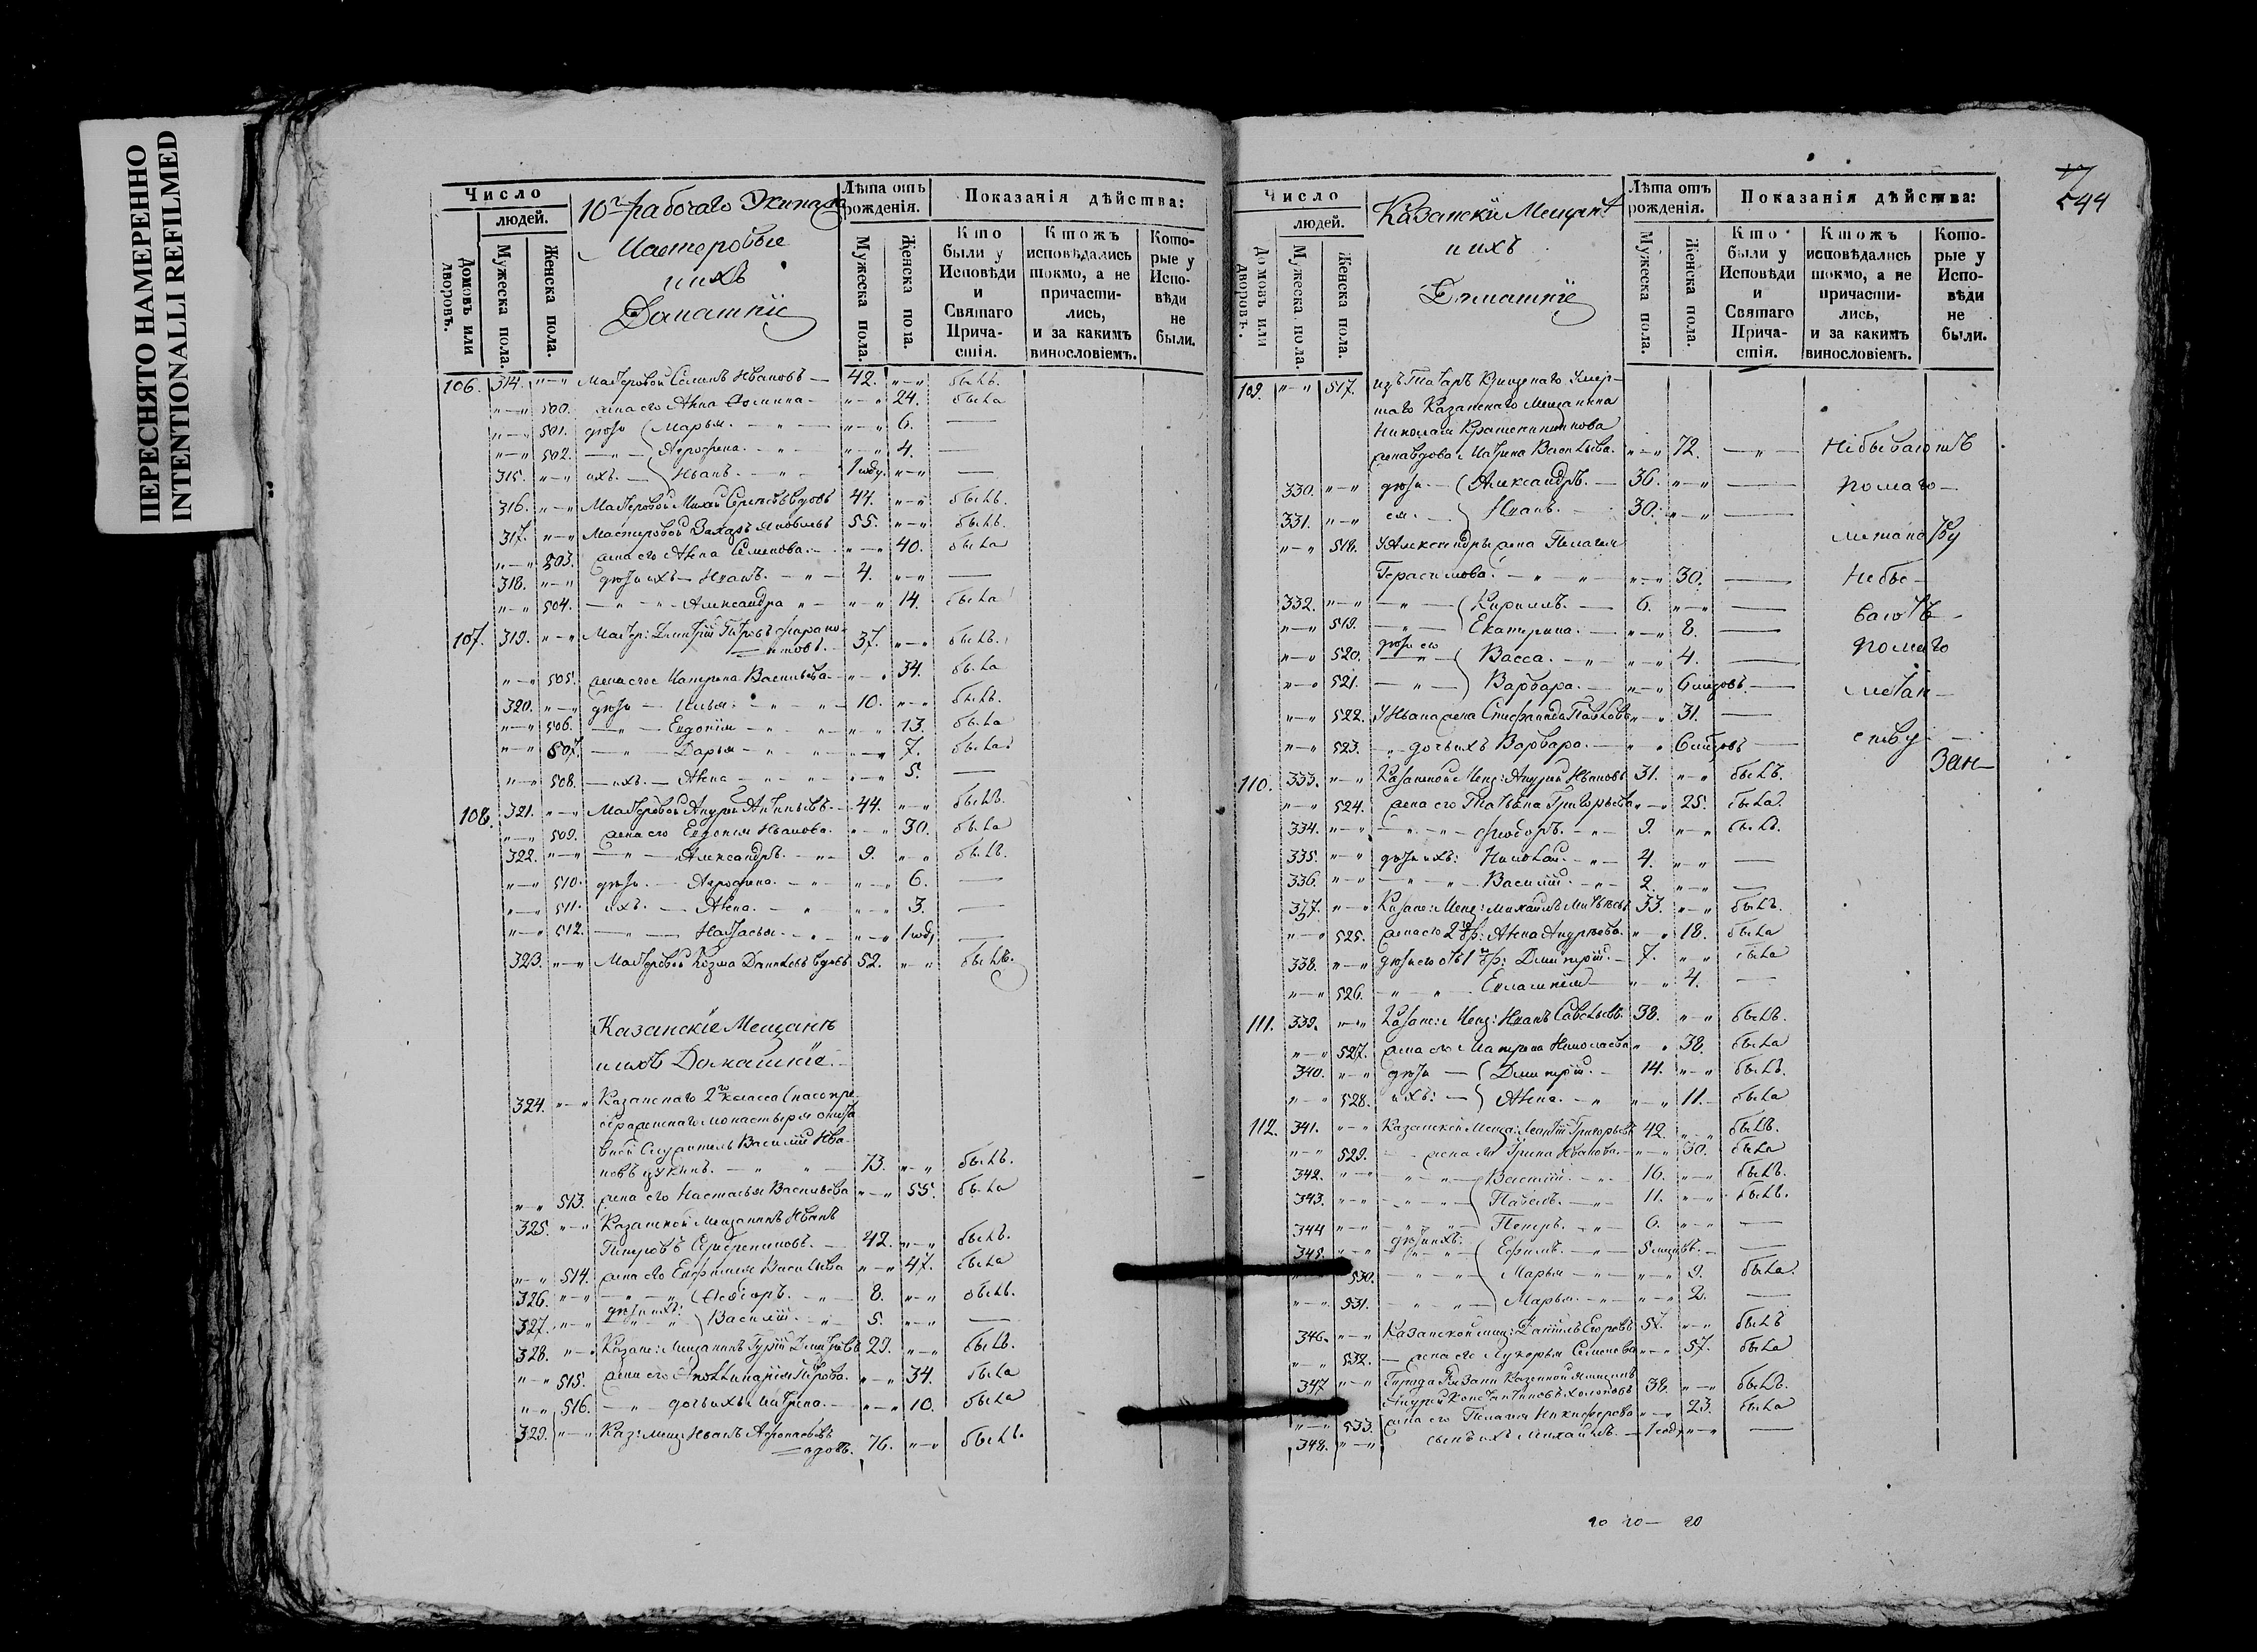 ПЕРЕСНЯТО НАМЕРЕННО
INTENTIONALLI REFILMED
Число
людей.
Домовъ или дворовъ.
Мужеска пола.
Женска пола.
10го рабочаго Экипажа
Мастеровые
и ихъ
Домашніе
Лѣта отъ рожденія.
Мужеска пола.
Женска пола.
Показанія дѣйства:
Кто были у Исповѣди и Святаго Причастія.
Ктожъ исповѣдались токмо, а не причастились, и за какимъ винословіемъ.
Которые у Исповѣди не были.
106. 314. Мастеровой Иванов 42. былъ.
500. жена его Анна 24. была
501. дѣти Марья. 6.
502. Агрофена. 4.
315. ихъ. Иванъ. 1 году.
316. Мастеровой вдовъ 44. былъ.
317. Мастеровой Захаръ Яковлевъ 55. былъ.
503. жена его Анна Семенова. 40. была
318. дѣти ихъ Иванъ. 4.
504. Александра 14. была
107. 319. Мастер: Дмитрій Петровъ 37. былъ.
505. жена его Матрена Васильева 34. была
320. дѣти Илья. 10. былъ.
506. Евдокія 13. была
507. Дарья 7. была
508. ихъ. Анна 5.
108. 321. Мастеровой Андрей 44. былъ.
509. жена его Евдокія Иванова. 30. была
322. Александръ. 9. былъ.
510. дѣти. Агрофена. 6.
511. ихъ. Анна. 3.
512. Настасья. 1 году
323. Мастеровой Козма Даниловъ вдовъ 52. былъ.
Казанскіе Мещанѣ
и ихъ Домашніе.
324. Казанскаго 2го класса Спасопре-
ображенскаго монастыря
Служитель Василій Ива-
новъ 73. былъ.
513. жена его Настасья Васильева 55. была
325. Казанской мещанинъ Иванъ
Петровъ 42. былъ.
514. жена его Евфимия Васильева 47. была
326. Ѳедоръ. 8. былъ.
327. дѣти ихъ: Василій. 5.
328. Казанс: Мещанинъ Гурій Дмитріевъ 29. былъ.
515. жена его Апполинария Петрова. 34. была
516. дочь ихъ Матрена. 10. была
329. Каз: мещ: Иванъ Афонасьевъ
вдовъ. 76. былъ.
544
Число
людей.
Домовъ или дворовъ.
Мужеска пола.
Женска пола.
Казанскіе Мещанѣ
и ихъ
Домашніе
Лѣта отъ рожденія.
Мужеска пола.
Женска пола.
Показанія дѣйства:
Кто были у Исповѣди и Святаго Причастія.
Ктожъ исповѣдались токмо, а не причастились, и за какимъ винословіемъ.
Которые у Исповѣди не были.
109. 517. изъ Татаръ Крещенаго умер-
шаго Казанскаго Мещанина
Николая Крашенинникова
жена вдова Матрена Васильева. 72. Небываютъ
330. дѣти Александръ. 36. помаго-
331. ея. Иванъ. 30.
518. У Александра жена Пелагея метанству
Герасимова. 30. Небы-
332. Кирилъ. 6.
519. Екатерина. 8. ваютъ
520. дѣти его Васса. 4. помаго
521. Варвара. 6 мѣсяцовъ метан-
522. У Ивана жена Стефанида Павлова 31.
523. дочь ихъ Варвара. 6 мѣсяцовъ ству
110. 333. Казанской Мещ: Андрей Ивановъ 31. былъ.
524. жена его Татьяна Григорьева 25. была.
334. Ѳеодоръ. 9. былъ.
335. дѣти ихъ: Николай. 4.
336. Василій. 2.
337. Казанс: Мещ: Михаилъ 33. былъ.
525. жена его 2го бр: Анна Андреева. 18. была
338. дѣти его отъ 1го бр: Дмитрій. 7. была
526. 4.
111. 339. Казанс: Мещ: Иванъ Савельевъ 38. былъ.
527. жена его Матрена Николаева 38. была
340. дѣти Дмитрій. 14. былъ.
528. ихъ: Анна. 11. была
112. 341. Казанской Меща: Леонтій Григорьевъ 42. былъ.
529. жена его Ирина Иванова. 30. была
342. Василій. 16. былъ.
343. Павелъ. 11. былъ.
344 Петръ. 6.
345. дѣти ихъ: Ефимъ. 5 мѣсяцовъ.
530. Марья 9. была.
531. Марья. 2.
346. Казанской мещ: Даниилъ Егоровъ 57. былъ
532. жена его Лукерья Семенова 57. была
347 Города Казани Казенной
Андрей Константиновъ 38. былъ.
533. жена его Пелагея Никифорова 23. была
348. сынъ ихъ Михаилъ. 1 году